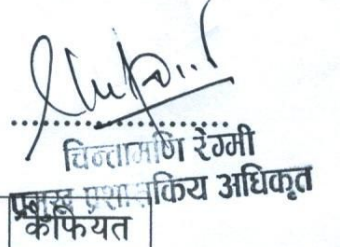 चिन्तामणि रेग्मी
प्रमुख प्रशासकिय अधिकृत
कैफियत